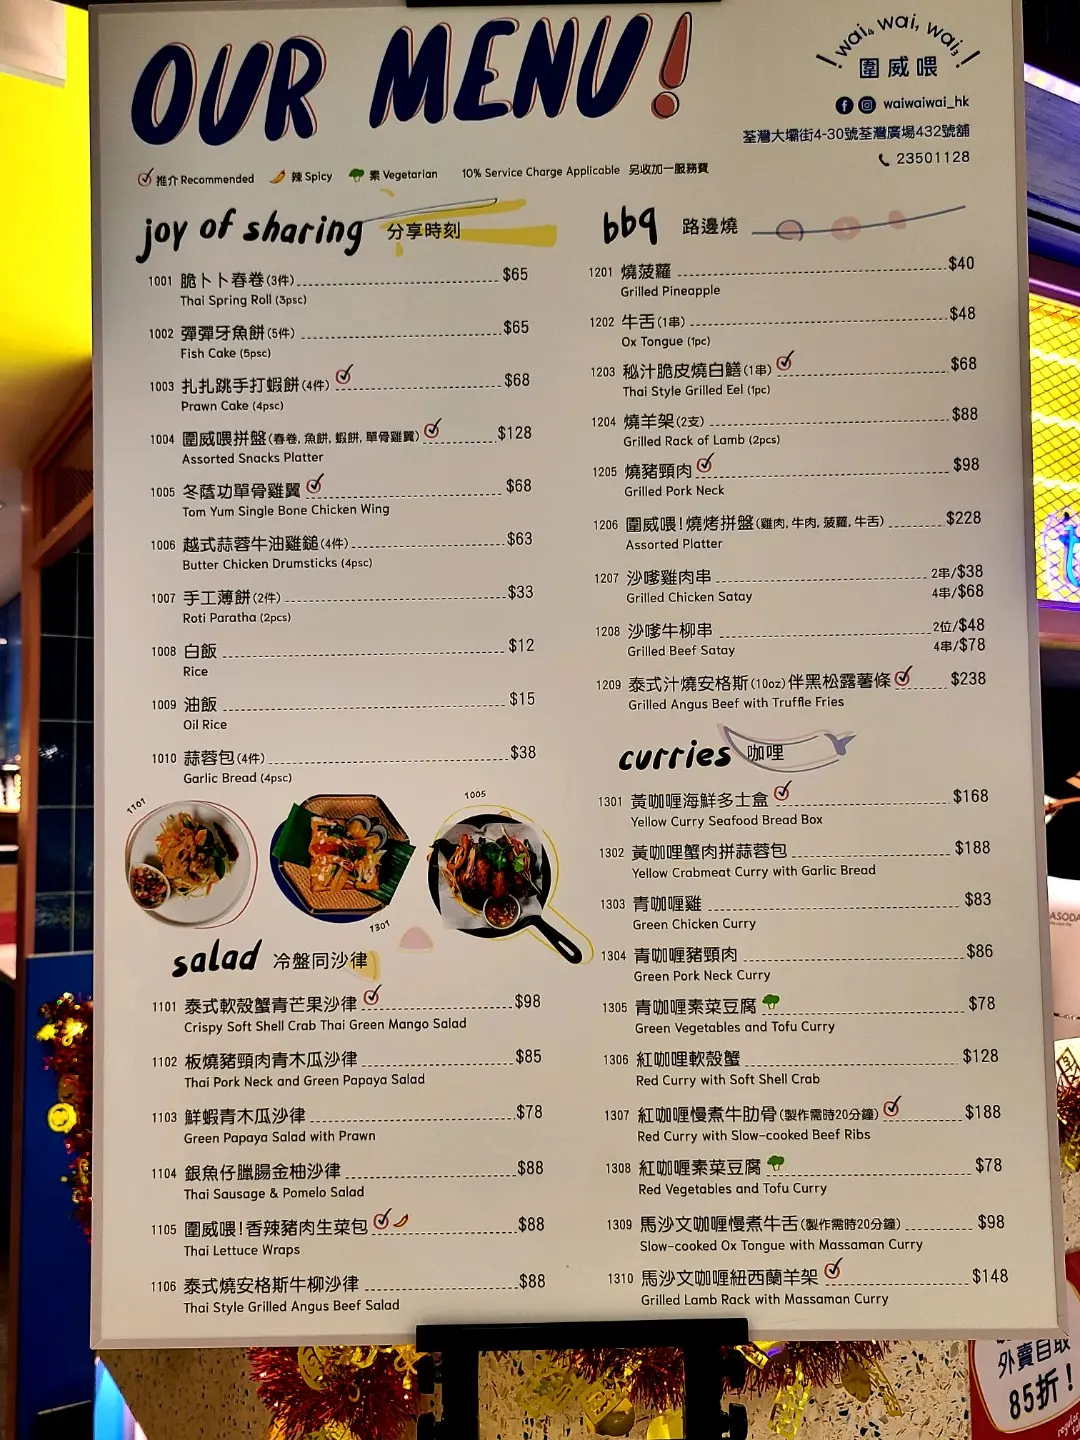 OUR MENU!
wai, wai, wai,
圍威喂
waiwaiwai_hk
荃灣大壩街4-30號荃灣廣場432號舖
23501128
推介 Recommended 辣 Spicy 素 Vegetarian 10% Service Charge Applicable 另收加一服務費
joy of sharing 分享時刻
1001 脆卜卜春卷(3件) $65
Thai Spring Roll (3psc)
1002 彈彈牙魚餅(5件) $65
Fish Cake (5psc)
1003 扎扎跳手打蝦餅(4件) $68
Prawn Cake (4psc)
1004 圍威喂拼盤(春卷, 魚餅, 蝦餅, 單骨雞翼) $128
Assorted Snacks Platter
1005 冬蔭功單骨雞翼 $68
Tom Yum Single Bone Chicken Wing
1006 越式蒜蓉牛油雞鎚(4件) $63
Butter Chicken Drumsticks (4psc)
1007 手工薄餅(2件) $33
Roti Paratha (2pcs)
1008 白飯 $12
Rice
1009 油飯 $15
Oil Rice
1010 蒜蓉包(4件) $38
Garlic Bread (4psc)
1101
1301
1005
salad 冷盤同沙律
1101 泰式軟殼蟹青芒果沙律 $98
Crispy Soft Shell Crab Thai Green Mango Salad
1102 板燒豬頸肉青木瓜沙律 $85
Thai Pork Neck and Green Papaya Salad
1103 鮮蝦青木瓜沙律 $78
Green Papaya Salad with Prawn
1104 銀魚仔臘腸金柚沙律 $88
Thai Sausage & Pomelo Salad
1105 圍威喂!香辣豬肉生菜包 $88
Thai Lettuce Wraps
1106 泰式燒安格斯牛柳沙律 $88
Thai Style Grilled Angus Beef Salad
bbq 路邊燒
1201 燒菠蘿 $40
Grilled Pineapple
1202 牛舌(1串) $48
Ox Tongue (1pc)
1203 秘汁脆皮燒白鱔(1串) $68
Thai Style Grilled Eel (1pc)
1204 燒羊架(2支) $88
Grilled Rack of Lamb (2pcs)
1205 燒豬頸肉 $98
Grilled Pork Neck
1206 圍威喂!燒烤拼盤(雞肉, 牛肉, 菠蘿, 牛舌) $228
Assorted Platter
1207 沙嗲雞肉串 2串/$38
Grilled Chicken Satay 4串/$68
1208 沙嗲牛柳串 2位/$48
Grilled Beef Satay 4串/$78
1209 泰式汁燒安格斯(10oz)伴黑松露薯條 $238
Grilled Angus Beef with Truffle Fries
curries 咖哩
1301 黃咖喱海鮮多士盒 $168
Yellow Curry Seafood Bread Box
1302 黃咖哩蟹肉拼蒜蓉包 $188
Yellow Crabmeat Curry with Garlic Bread
1303 青咖喱雞 $83
Green Chicken Curry
1304 青咖喱豬頸肉 $86
Green Pork Neck Curry
1305 青咖喱素菜豆腐 $78
Green Vegetables and Tofu Curry
1306 紅咖哩軟殼蟹 $128
Red Curry with Soft Shell Crab
1307 紅咖喱慢煮牛肋骨(製作需時20分鐘) $188
Red Curry with Slow-cooked Beef Ribs
1308 紅咖喱素菜豆腐 $78
Red Vegetables and Tofu Curry
1309 馬沙文咖喱慢煮牛舌(製作需時20分鐘) $98
Slow-cooked Ox Tongue with Massaman Curry
1310 馬沙文咖喱紐西蘭羊架 $148
Grilled Lamb Rack with Massaman Curry
外賣自取
85折!